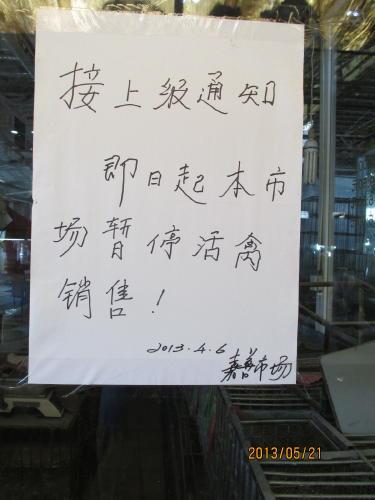 接上级通知
即日起本市
场暂停活禽
销售！
2013.4.6
嘉善市场
2013/05/21